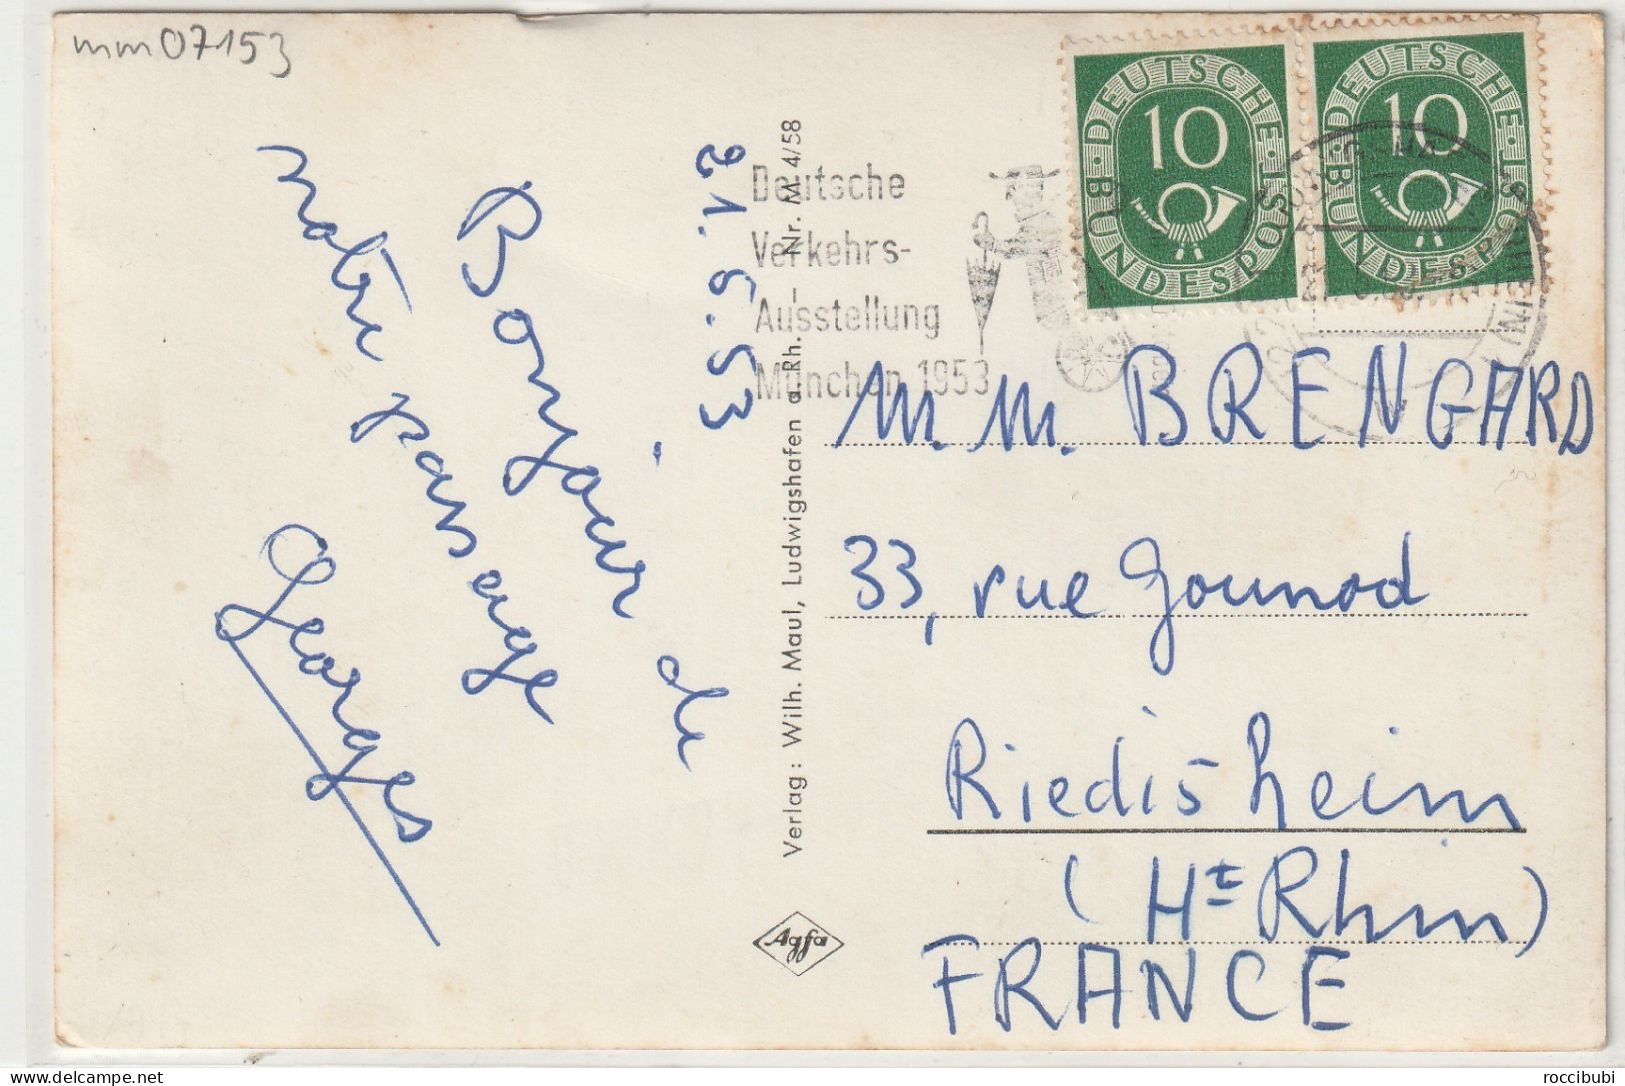 mm07153
21.6.53
Bonjour de
notre passage
Georges
Verlag: Wilh. Maul, Ludwigshafen a. Rh. Nr. M 4/58
Agfa
Deutsche
Verkehrs-
Ausstellung
München 1953
DEUTSCHE BUNDESPOST
10
DEUTSCHE BUNDESPOST
10
M. M. BRENGARD
33, rue Gounod
Riedisheim
(Ht Rhin)
FRANCE
roccibubi